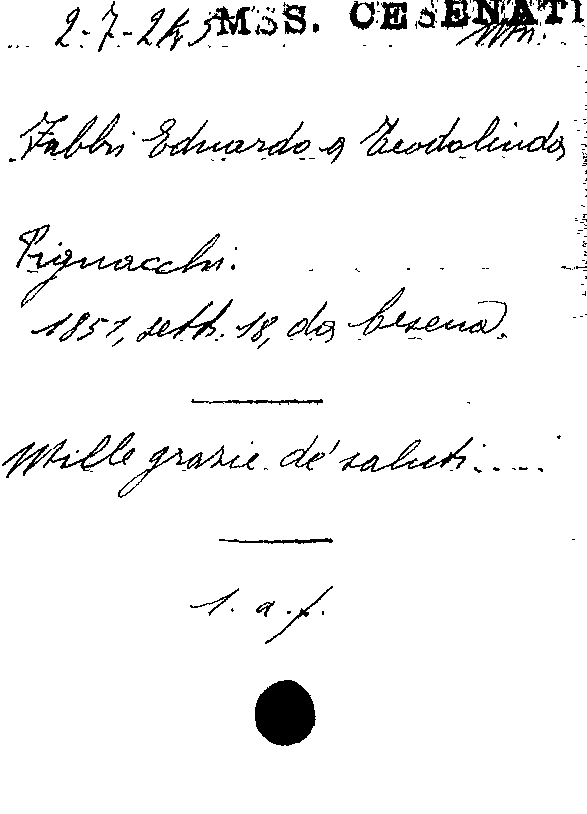 MSS. CESENATI
Fabbri Eduardo a Teodolinda
Pignacchi.
1851, sett. 18, da Cesena.
Mille grazie de' saluti....
1. a. f.